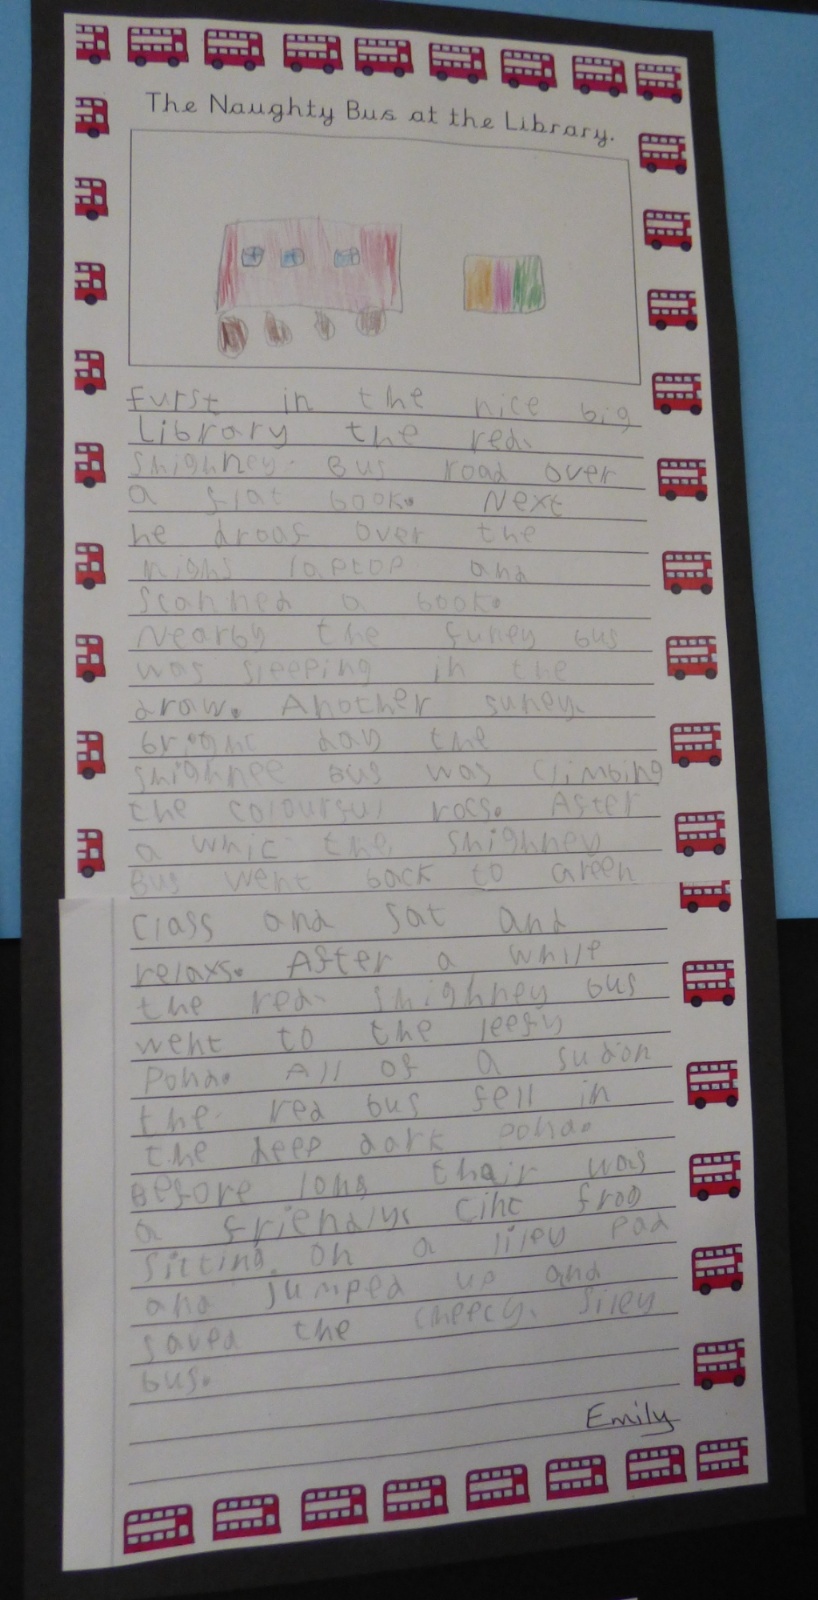 The Naughty Bus at the Library.
furst in the nice big
Library the red.
shighney. Bus road over
a flat book. Next
he droas over the
laptop and
scanned a book.
Nearby the funey bus
was sleeping in the
draw. Another suney.
bright day the
shighnee Bus was climbing
the colourful rocs. After
a the shighney
Bus went back to Green
Class and sat and
relaxs. After a while
the red. shighney bus
went to the leefy
Pond. All of a sudon
the red bus fell in
the deep dark pond.
Before long thair was
a cint frog
sitting. on a liley pad
and jumped up and
saved the cheecy. siley
bus.
Emily